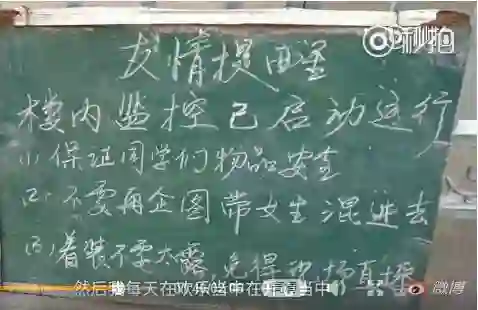 秒拍
友情提醒
楼内监控已启动运行
(1)保证同学们物品安全
(2)不要再企图带女生混进去
(3)着装不要太露,免得现场直播
然后我每天在欢乐当中在
当中
微博